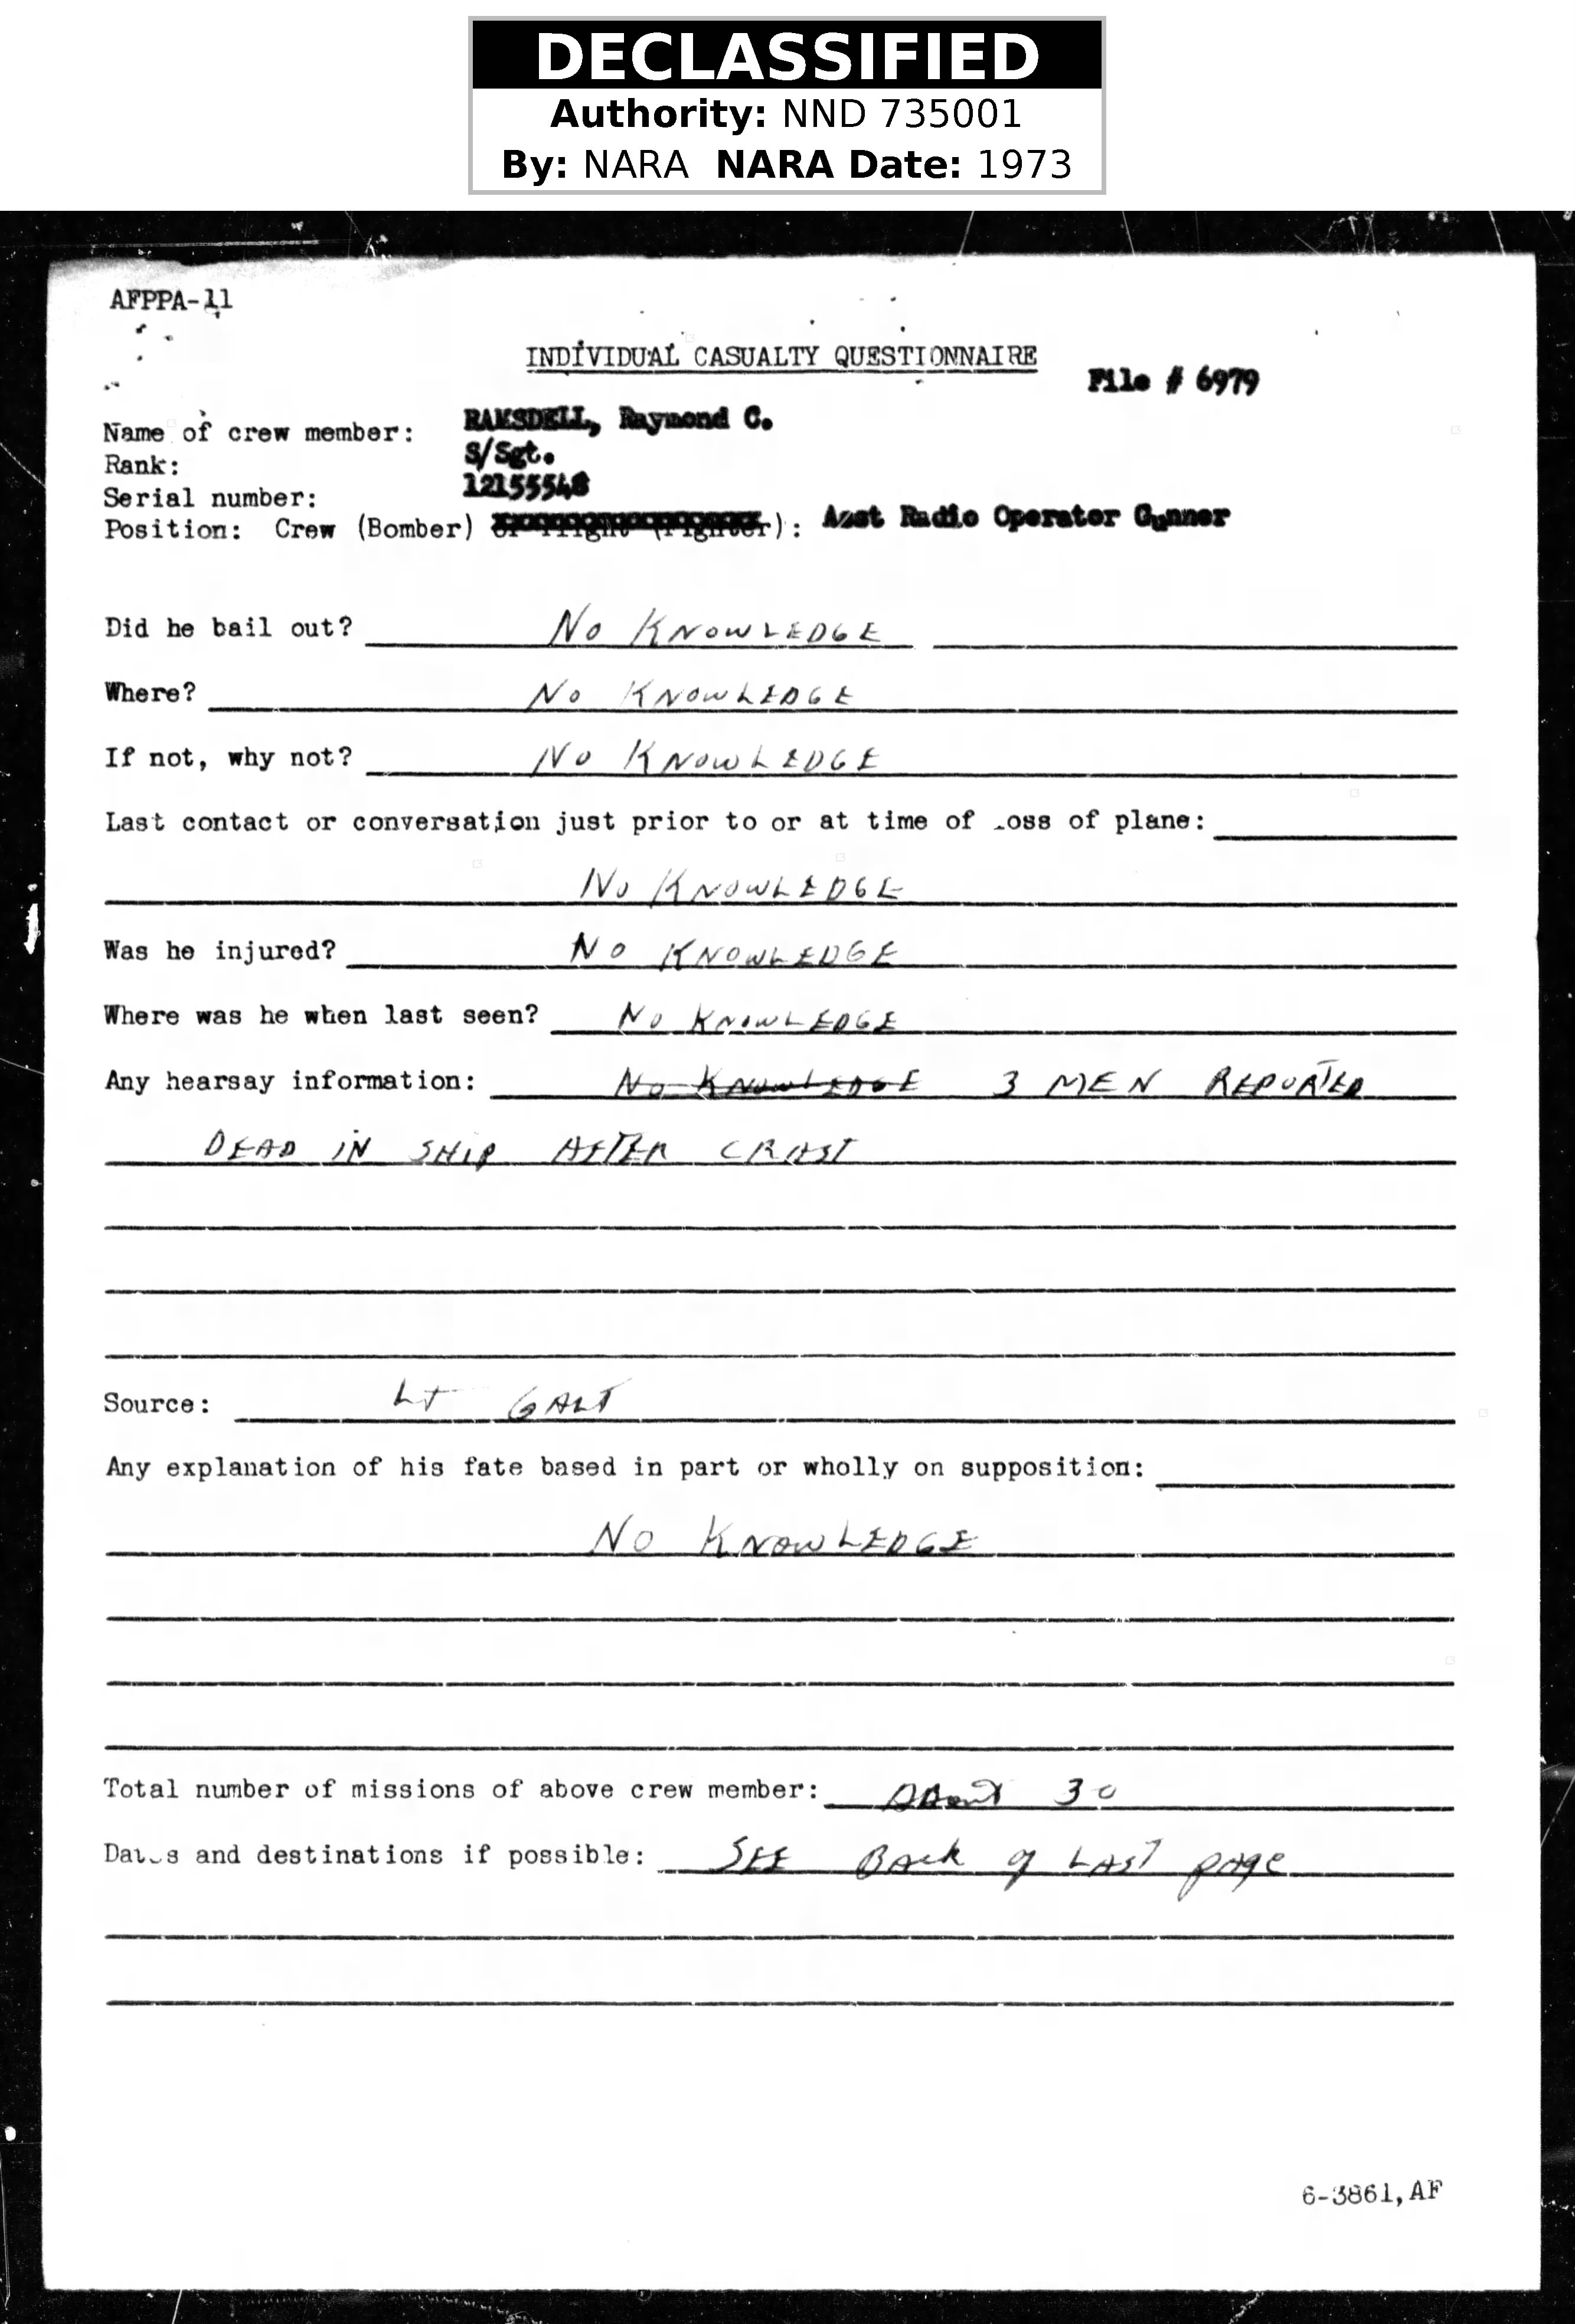 DECLASSIFIED
Authority: NND 735001
By: NARA NARA Date: 1973
AFPPA-11
INDIVIDUAL CASUALTY QUESTIONNAIRE
File # 6979
Name of crew member: RAMSDELL, Raymond C.
Rank: S/Sgt.
Serial number: 12155548
Position: Crew (Bomber) or Flight (Fighter): Asst Radio Operator Gunner
Did he bail out? No KNOWLEDGE
Where? No KNOWLEDGE
If not, why not? No KNOWLEDGE
Last contact or conversation just prior to or at time of loss of plane:
No KNOWLEDGE
Was he injured? No KNOWLEDGE
Where was he when last seen? No KNOWLEDGE
Any hearsay information: No KNOWLEDGE 3 MEN REPORTED
DEAD IN SHIP AFTER CRAST
Source: Lt GALT
Any explanation of his fate based in part or wholly on supposition:
No KNOWLEDGE
Total number of missions of above crew member: About 30
Dates and destinations if possible: SEE Back of LAST page
6-3861,AF